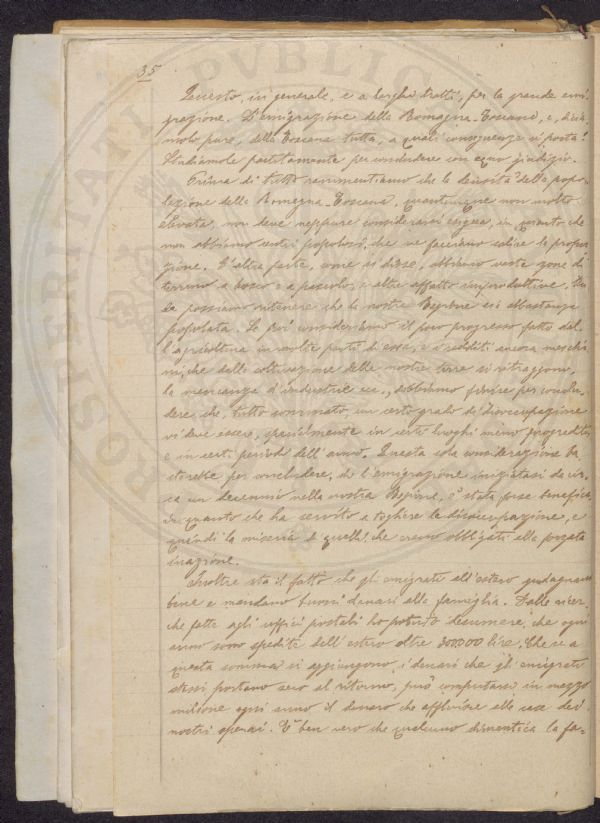 35
Questo, in generale, e a larghi tratti, per la grande emi-
grazione. L'emigrazione della Romagna-Toscana, e, dicia-
molo pure, della Toscana tutta, a quali conseguenze ci porta?
Studiamole partitamente per concludere con equo giudizio.
Prima di tutto rammentiamo che la densità della popo-
lazione della Romagna-Toscana, quantunque non molto
elevata, non deve neppure considerarsi esigua, in quanto che
non abbiamo centri popolosi, che ne facciano salire la propor-
zione. D'altra parte, come si disse, abbiamo vaste zone di
terreno a bosco e a pascolo, e altre affatto improduttive.
da possiamo ritenere che la nostra Regione sia abbastanza
popolata. Se poi consideriamo il poco progresso fatto dal-
l'agricoltura in molte parti di essa, e i redditi ancora meschi-
ni, che dalla coltivazione delle nostre terre si ritraggono,
la mancanza d'industrie ecc., dobbiamo finire per conclu-
dere che, tutto sommato, un certo grado di disoccupazione
vi deve essere, specialmente in certi luoghi meno progrediti
e in certi periodi dell'anno. Questa sola considerazione ba-
sterebbe per concludere, che l'emigrazione iniziatasi da cir-
ca un decennio nella nostra Regione, è stata forse benefica,
in quanto che ha servito a togliere la disoccupazione, e
quindi la miseria di quelli che erano obbligati alla forzata
inazione.
Inoltre sta il fatto che gli emigrati all'estero guadagnano
bene e mandano buoni denari alla famiglia. Dalle ricer-
che fatte agli uffici postali ho potuto desumere, che ogni
anno sono spedite dall'estero oltre 300.000 lire. Che se a
questa somma si aggiungono i denari che gli emigrati
stessi portano seco al ritorno, può computarsi in mezzo
milione ogni anno il denaro che affluisce alle case dei
nostri operai. È ben vero che qualcuno dimentica la fa-